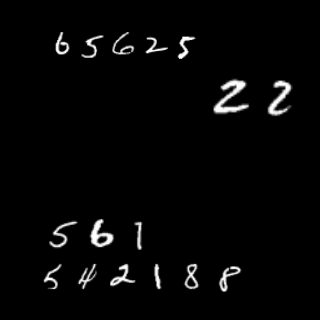 65625
22
561
542188